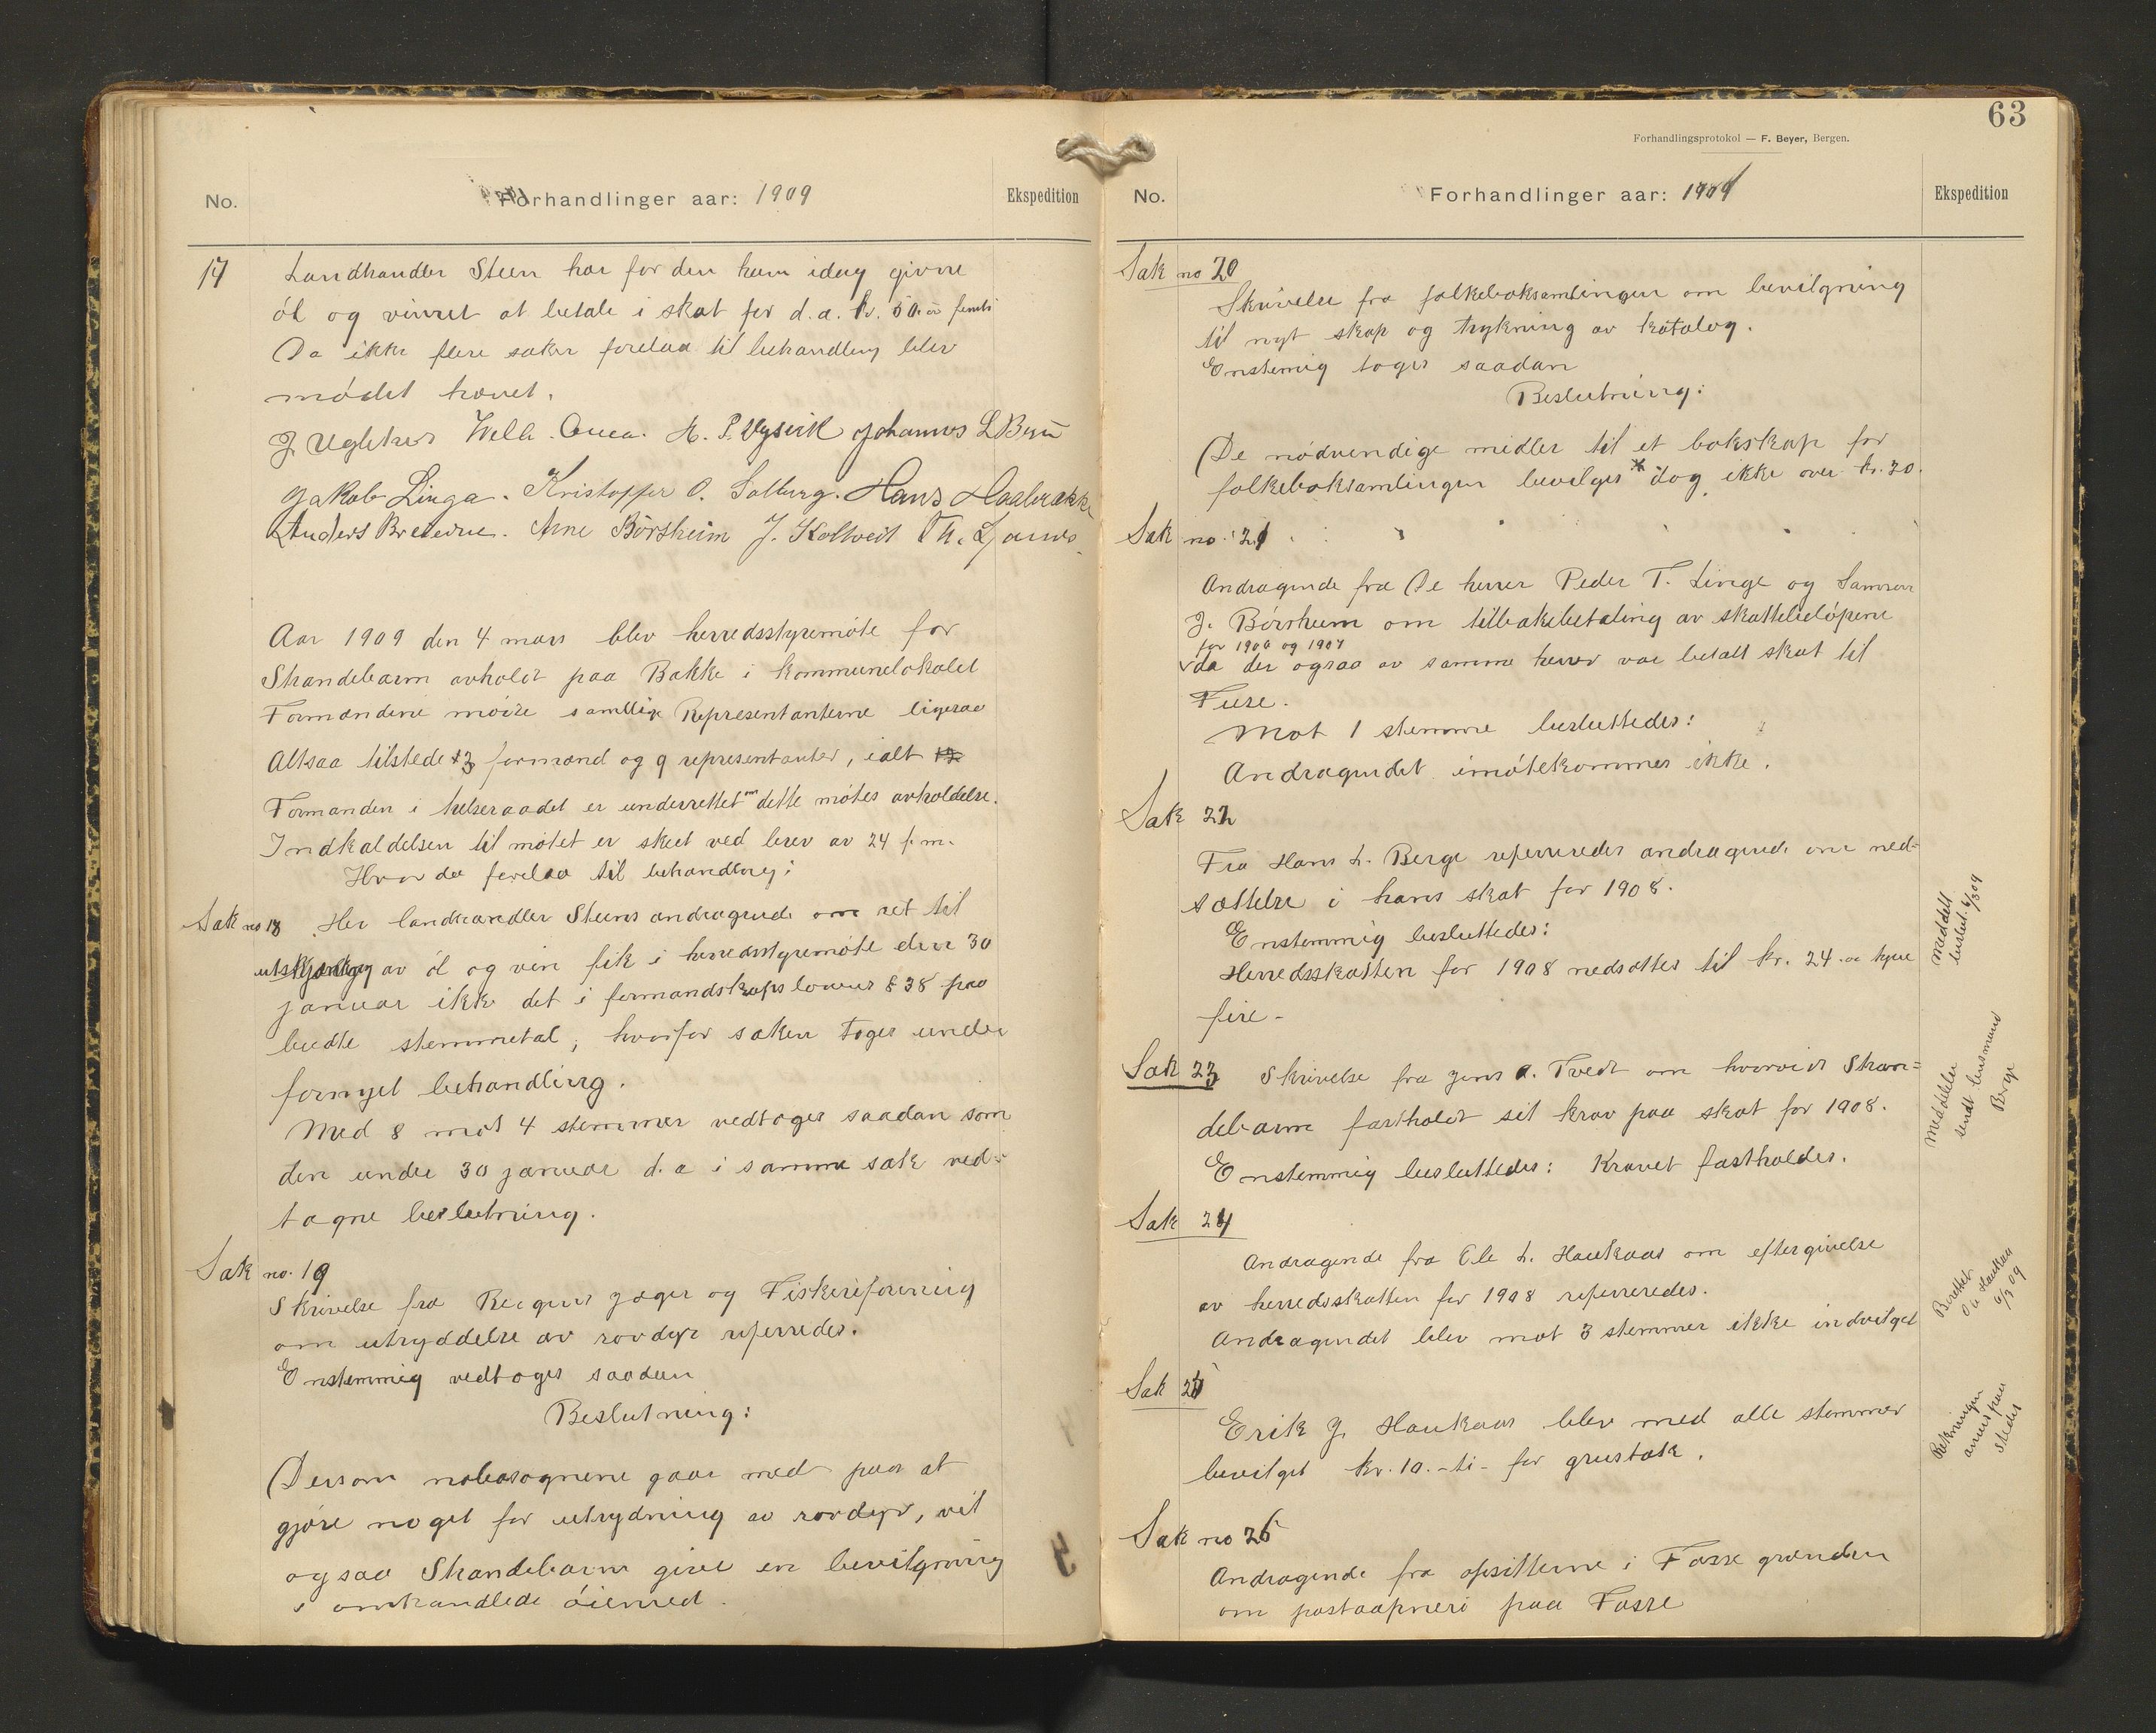 No.
Forhandlinger aar: 1909
Ekspedition
17
Landhandler Steen har for den ham idag givne
öl og vinret at betale i skat for d.a. kr. 50.00 femti
Da ikke flere saker forelaa til behandling blev
mödet hævet.
J. Hans Haabrække
Jakob Linga. Kristoffer O. Solberg.
Arne Börsheim J. Koltveit
Aar 1909 den 4 mars blev herredsstyremöte for
Strandebarm avholdt paa Bakke i kommunelokalet
Formændene mötte samtlige Representanterne ligesaa
Altsaa tilstede 3 formænd og 9 representanter, ialt 12
Formanden i helseraadet er underrettet om dette mötes avholdelse.
Indkaldelsen til mötet er skeet ved brev av 24 f.m.
Hvor da forelaa til behandling:
Sak no 18
Her landhandler Steens andragende om ret til
utskjænkning av öl og vin fik i herredsstyremöte den 30
januar ikke det i formandskapslovens § 38 paa
budte stemmetal, hvorfor saken toges under
fornyet behandling.
Med 8 mot 4 stemmer vedtoges saadan som
den under 30 januar d.a i samme sak ved=
tagne beslutning.
Sak no. 19
Skrivelse fra Bergens Jæger og Fiskeriforening
om utryddelse av rovdyr refereredes.
Enstemmig vedtoges saadan
Beslutning:
Dersom nabosognene gaar med paa at
gjöre noget for utrydning av rovdyr, vil
ogsaa Strandebarm give en bevilgning
i omhandlede öiemed.
63
Forhandlingsprotokol — F. Beyer, Bergen.
No.
Forhandlinger aar: 1909
Ekspedition
Sak no 20
Skrivelse fra folkeboksamlingen om bevilgning
til nyt skap og trykning av katalog.
Enstemig toges saadan
Beslutning:
De nödvendige midler til et bokskap for
folkeboksamlingen bevilges * dog ikke over kr. 20.
Sak no. 21
Andragende fra De herrer Peder T. Linge og Samson
J. Börsheim om tilbakebetaling av skattebelöpene
for 1906 og 1907
da der ogsaa av samme herrer var betalt skat til
Fuse.
Mot 1 stemme besluttedes:
Andragendet imötekommes ikke.
Sak 22
Fra Hans L. Berge refereredes andragende om ned-
sættelse i hans skat for 1908.
Enstemmig besluttedes:
Herredsskatten for 1908 nedsættes til kr. 24.00 tyve
fire-
Meddelt
beslut. 6/3 09
Sak 23
Skrivelse fra Jens A. Tvedt om hvorvidt Stran=
debarm fastholdt sit krav paa skat for 1908.
Enstemmig besluttedes: Kravet fastholdes.
Meddelelse
sendt lensmand
Berge
Sak 24
Andragende fra Ole L. Haukaas om eftergivelse
av herredsskatten for 1908 refereredes.
Andragendet blev mot 3 stemmer ikke indvilget
Berettet
O. L. Haukaas
6/3 09
Sak 25
Erik J. Haukaas blev med alle stemmer
bevilget kr. 10.-ti- for grustak.
Rekningen
anvist paa
stedet
Sak no 26
Andragende fra opsitterne i Fosse grænden
om postaapneri paa Fosse